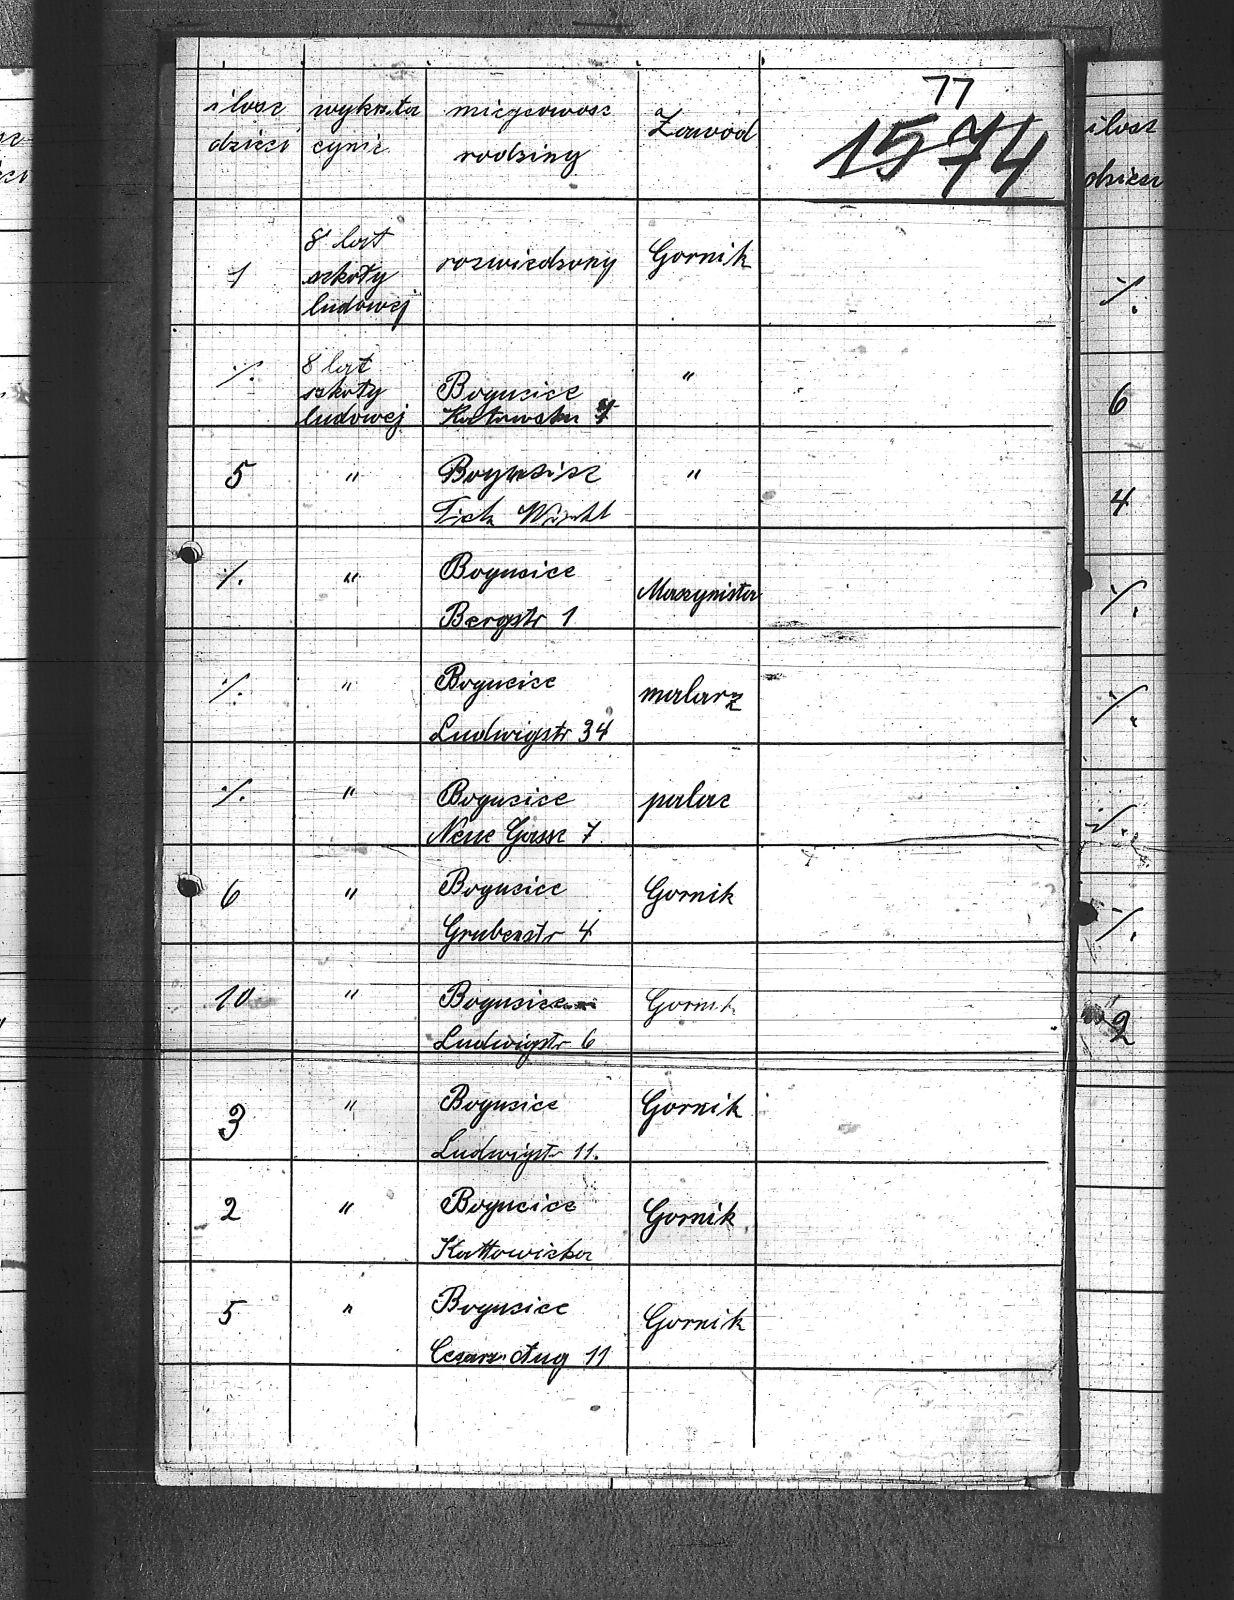 77
1574
ilosz dzieci wykszta cynie miejscowosc rodziny Zawód
1 8 lat szkoły ludowej rozwiedzony Gornik
·/. 8 lat szkoły ludowej Bogucice Katowska 7 "
5 " Bogucice "
·/. " Bogucice Bergstr 1 Maszynista
·/. " Bogucice Ludwigstr 34 malarz
·/. " Bogucice Neue Gasse 7 palac
6 " Bogucice Grubenstr 4 Gornik
10 " Bogucice Ludwigstr 6 Gornik
3 " Bogucice Ludwigstr 11. Gornik
2 " Bogucice Kattowicka Gornik
5 " Bogucice Cesarz. Aug 11 Gornik
ilosz
dzieci
·/.
6
4
·/.
·/.
·/.
·/.
2